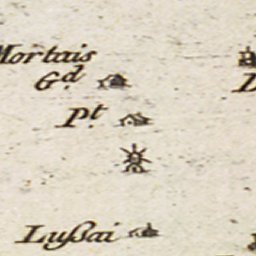 Mortais
G.d
P.t
Lußai